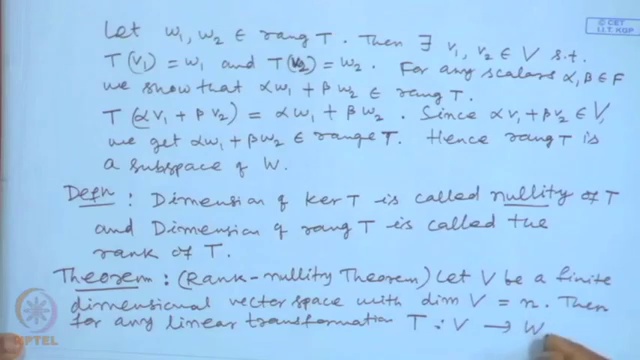 © CET
I.I.T. KGP
Let w₁, w₂ ∈ rang T. Then ∃ v₁, v₂ ∈ V s.t.
T(v₁) = w₁ and T(v₂) = w₂. For any scalars α, β ∈ F
we show that αw₁ + βw₂ ∈ rang T.
T(αv₁ + βv₂) = αw₁ + βw₂. Since αv₁ + βv₂ ∈ V,
we get αw₁ + βw₂ ∈ range T. Hence rang T is
a subspace of W.
Defn: Dimension of ker T is called nullity of T
and Dimension of rang T is called the
rank of T.
Theorem: (Rank-nullity Theorem) Let V be a finite
dimensional vector space with dim V = n. Then
for any linear transformation T: V → W
NPTEL